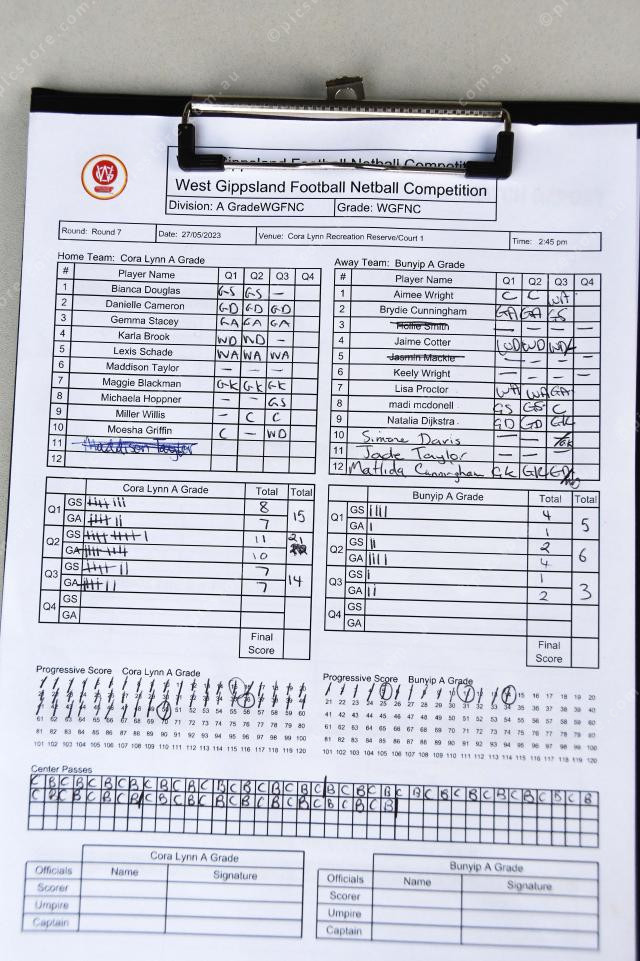 Gippsland Football Netball Competit
West Gippsland Football Netball Competition
Division: A GradeWGFNC Grade: WGFNC
Round: Round 7 Date: 27/05/2023 Venue: Cora Lynn Recreation Reserve/Court 1 Time: 2:45 pm
Home Team: Cora Lynn A Grade
# Player Name Q1 Q2 Q3 Q4
1 Bianca Douglas GS GS –
2 Danielle Cameron GD GD GD
3 Gemma Stacey GA GA GA
4 Karla Brook WD WD –
5 Lexis Schade WA WA WA
6 Maddison Taylor – – –
7 Maggie Blackman GK GK GK
8 Michaela Hoppner – – GS
9 Miller Willis – C C
10 Moesha Griffin C – WD
11 Maddison Taylor
12
Away Team: Bunyip A Grade
# Player Name Q1 Q2 Q3 Q4
1 Aimee Wright C C WA
2 Brydie Cunningham GA GA GS
3 Hollie Smith — — — —
4 Jaime Cotter WD WD WD
5 Jasmin Mackie — — — —
6 Keely Wright — — — —
7 Lisa Proctor WA WA GA
8 madi mcdonell GS GS C
9 Natalia Dijkstra GD GD GK
10 Simone Davis — —
11 Jade Taylor — — —
12 Matilda Cunningham GK GK GD
Cora Lynn A Grade Total Total
Q1 GS 8 15
GA 7
Q2 GS 11 21
GA 10
Q3 GS 7 14
GA 7
Q4 GS
GA
Final
Score
Bunyip A Grade Total Total
Q1 GS 4 5
GA 1
Q2 GS 2 6
GA 4
Q3 GS 1 3
GA 2
Q4 GS
GA
Final
Score
Progressive Score Cora Lynn A Grade
61 62 63 64 65 66 67 68 69 70 71 72 73 74 75 76 77 78 79 80
81 82 83 84 85 86 87 88 89 90 91 92 93 94 95 96 97 98 99 100
101 102 103 104 105 106 107 108 109 110 111 112 113 114 115 116 117 118 119 120
Progressive Score Bunyip A Grade
15 16 17 18 19 20
21 22 23 24 25 26 27 28 29 30 31 32 33 34 35 36 37 38 39 40
41 42 43 44 45 46 47 48 49 50 51 52 53 54 55 56 57 58 59 60
61 62 63 64 65 66 67 68 69 70 71 72 73 74 75 76 77 78 79 80
81 82 83 84 85 86 87 88 89 90 91 92 93 94 95 96 97 98 99 100
101 102 103 104 105 106 107 108 109 110 111 112 113 114 115 116 117 118 119 120
Center Passes
C B C B C B C B C B C B C B C B C B C B C B C B C B C B C B C B C B C B C B C B
C B C B C B C B C B C B C B C B C B C B C B C B C B
Cora Lynn A Grade
Officials Name Signature
Scorer
Umpire
Captain
Bunyip A Grade
Officials Name Signature
Scorer
Umpire
Captain